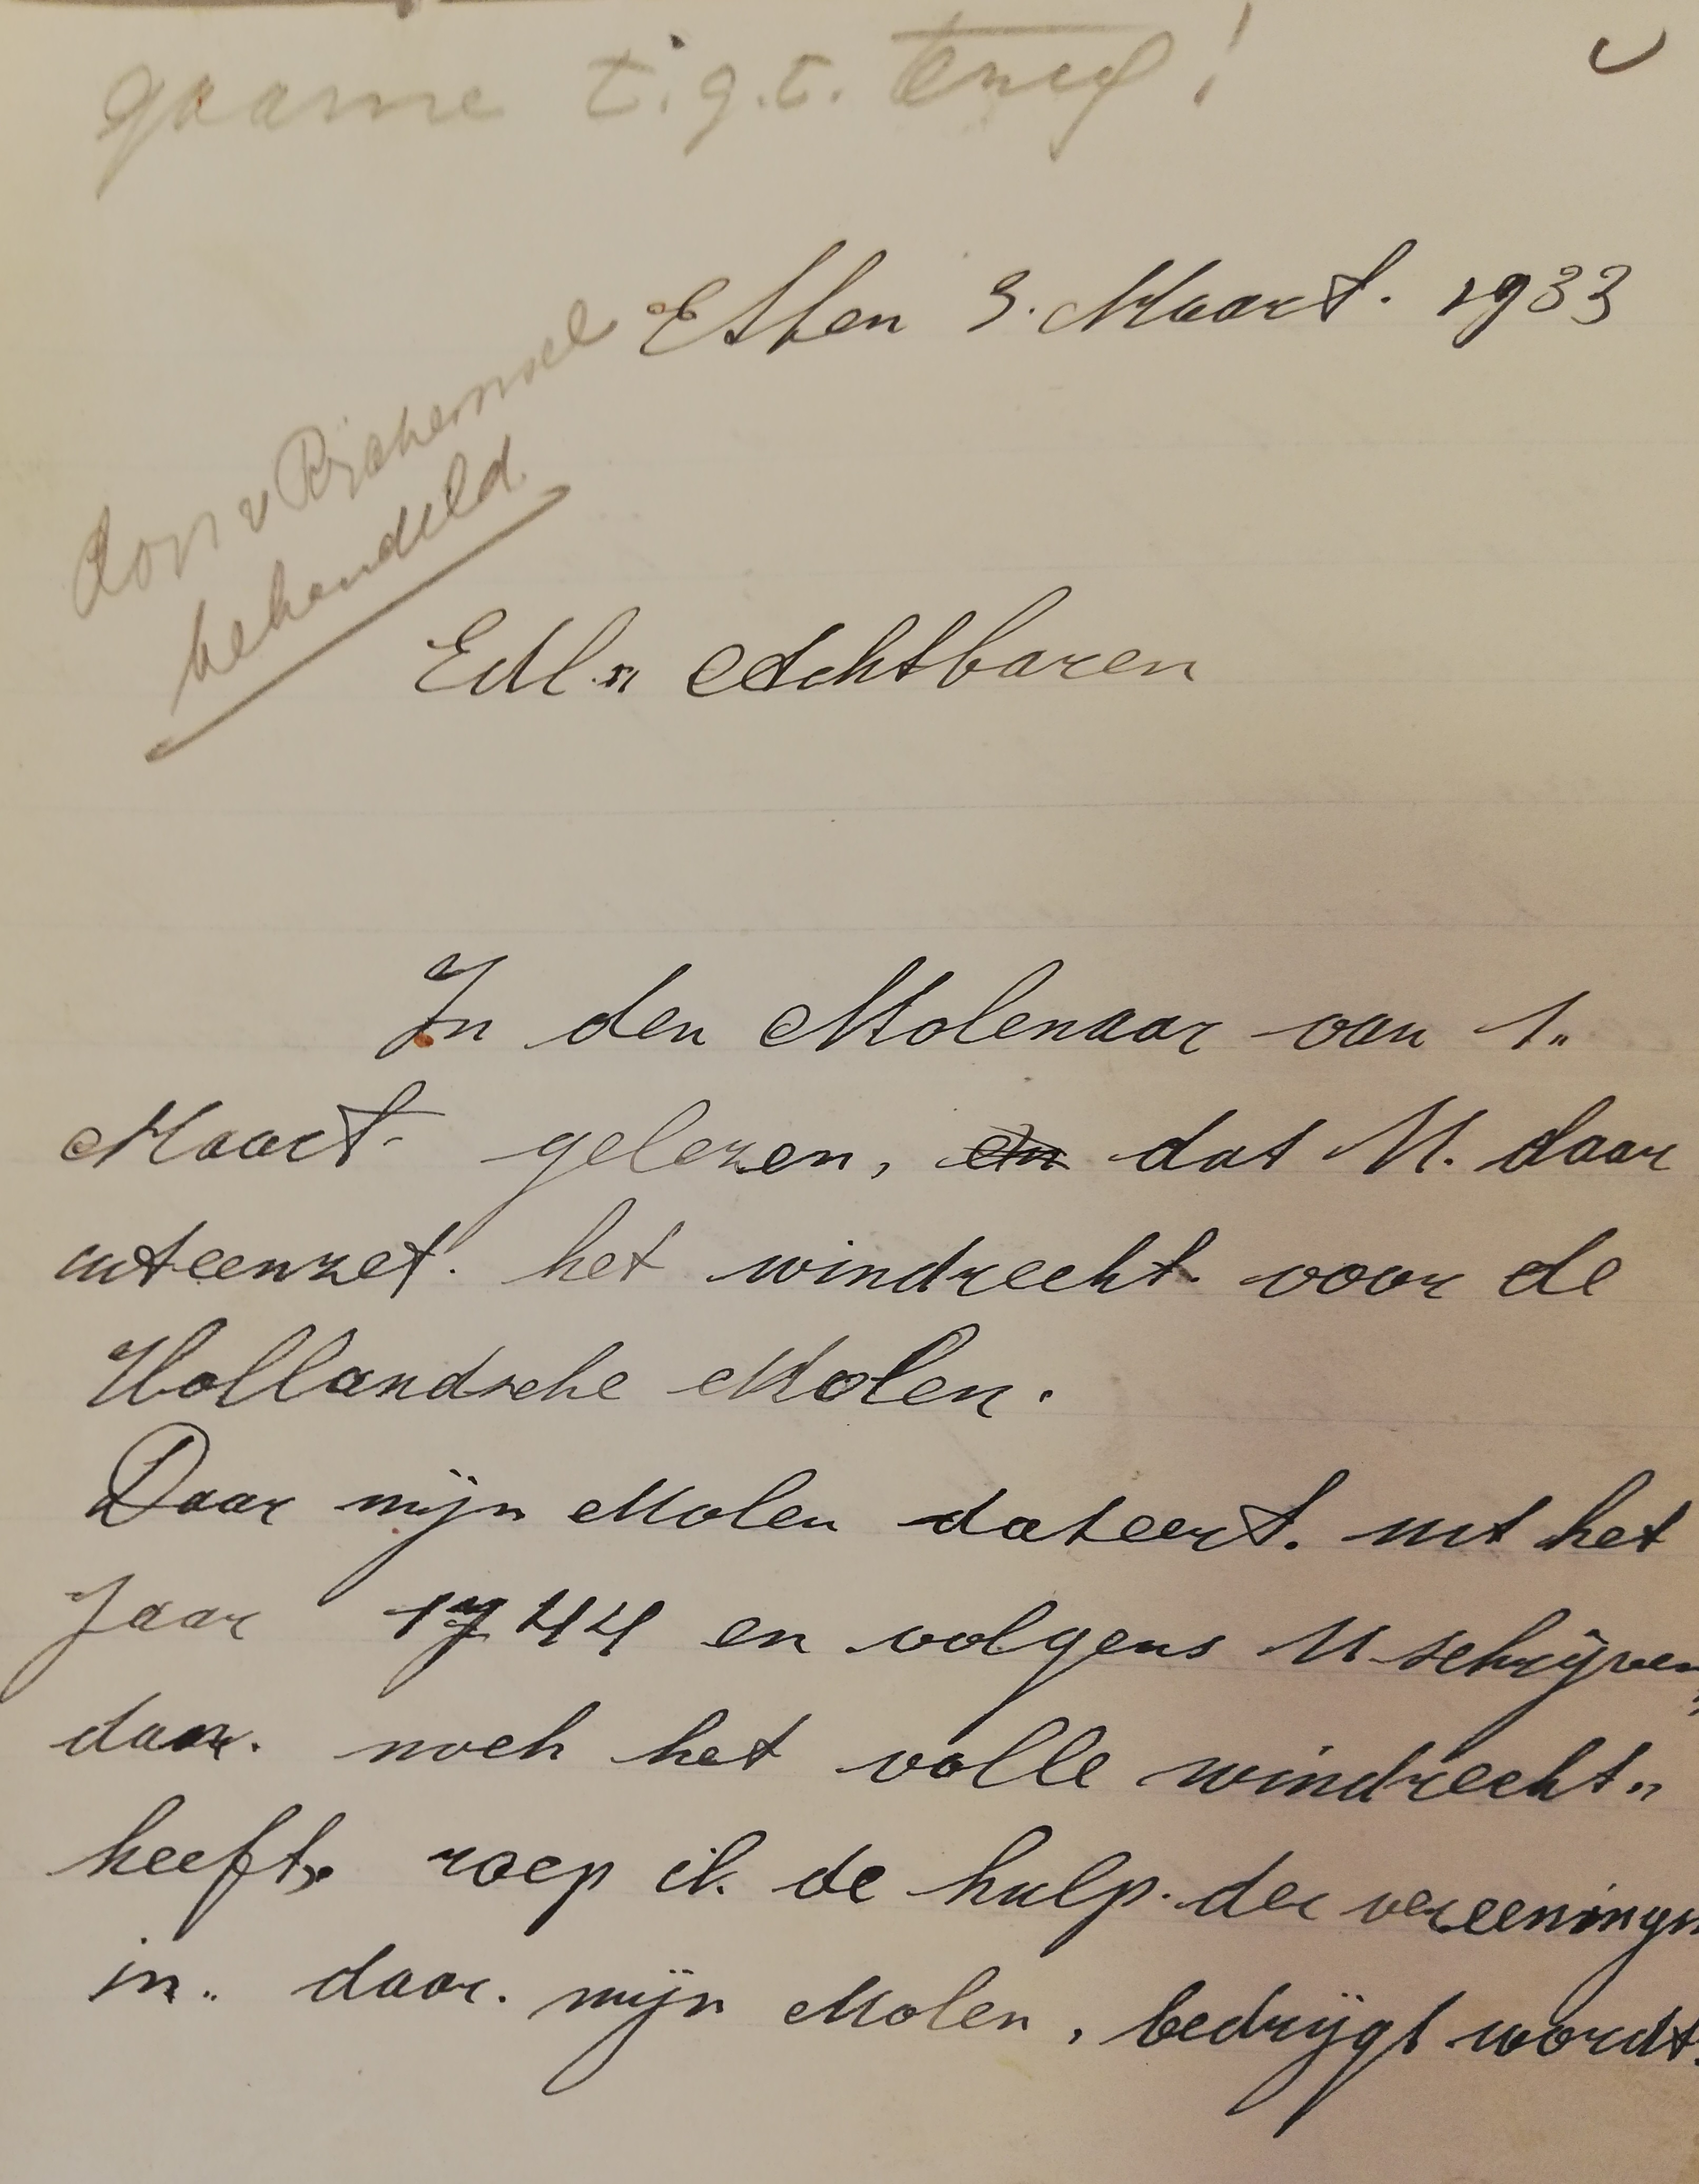 gaarne t.g.t. terug!
Etten 3. Maart. 1933
door v Rijckevorsel
behandeld
Edl. Achtbaren
In den Molenaar van 1.
Maart. gelezen, en dat U. daar
uteenzet. het windrecht. voor de
Hollandsche Molen.
Daar mijn Molen dateert. uit het
Jaar 1744 en volgens U schrijven,
daar. noch het volle windrecht„
heeft, roep ik de hulp. der vereeningn
in„ daar. mijn Molen, bedrijgt wordt.